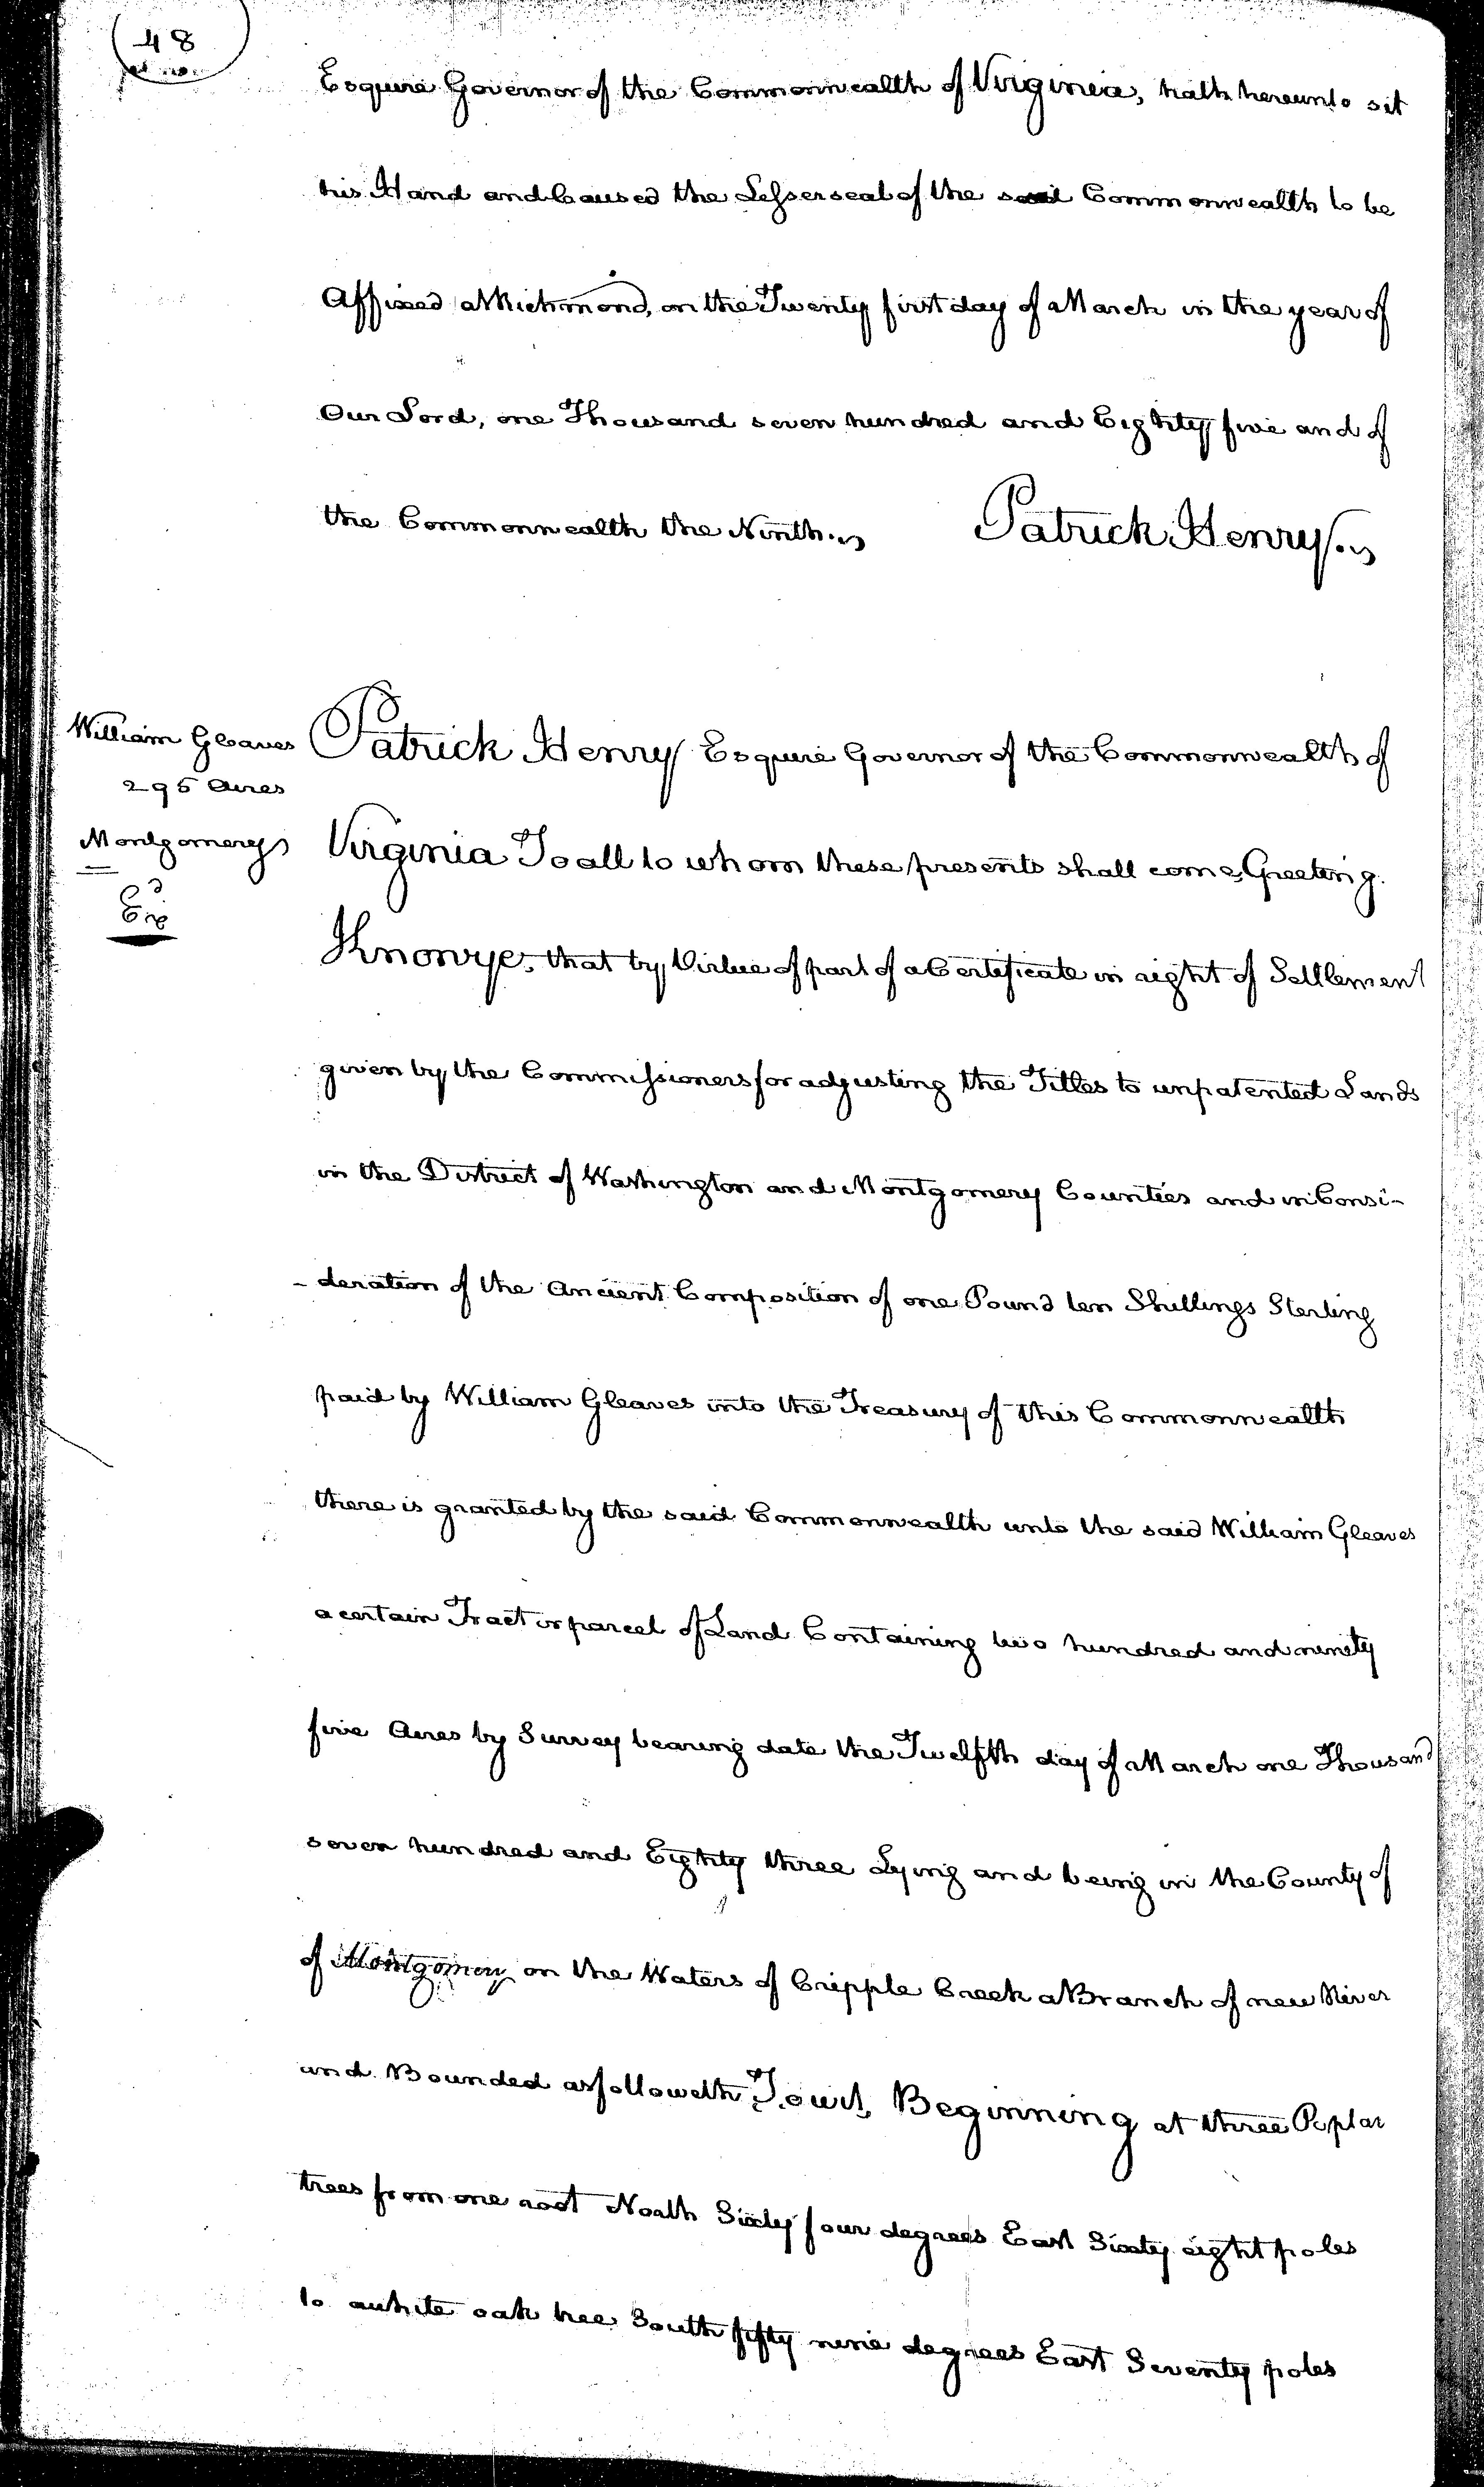 48
Esquire Governor of the Commonwealth of Virginia, hath hereunto set
his Hand and Caused the Lesser seal of the said Commonwealth to be
Affixed at Richmond, on the Twenty first day of March in the year of
Our Lord, one Thousand seven hundred and Eighty five and of
the Commonwealth the Ninth.
Patrick Henry
William Gleaves
295 Acres
Montgomery
Exd
Patrick Henry Esquire Governor of the Commonwealth of
Virginia To all to whom these presents shall come, Greeting.
Know ye, that by Virtue of part of a Certificate in right of Settlement
given by the Commissioners for adjusting the Titles to unpatented Lands
in the District of Washington and Montgomery Counties and in Consi-
-deration of the Ancient Composition of one Pound ten Shillings Sterling
paid by William Gleaves into the Treasury of this Commonwealth
there is granted by the said Commonwealth unto the said William Gleaves
a certain Tract or parcel of Land Containing two hundred and ninety
five Acres by Survey bearing date the Twelfth day of March one Thousand
seven hundred and Eighty three Lying and being in the County of
of Montgomery on the Waters of Cripple Creek a Branch of new River
and Bounded as followeth Towit, Beginning at three Poplar
trees from one root North Sixty four degrees East Sixty eight poles
to a white oak tree South fifty nine degrees East Seventy poles